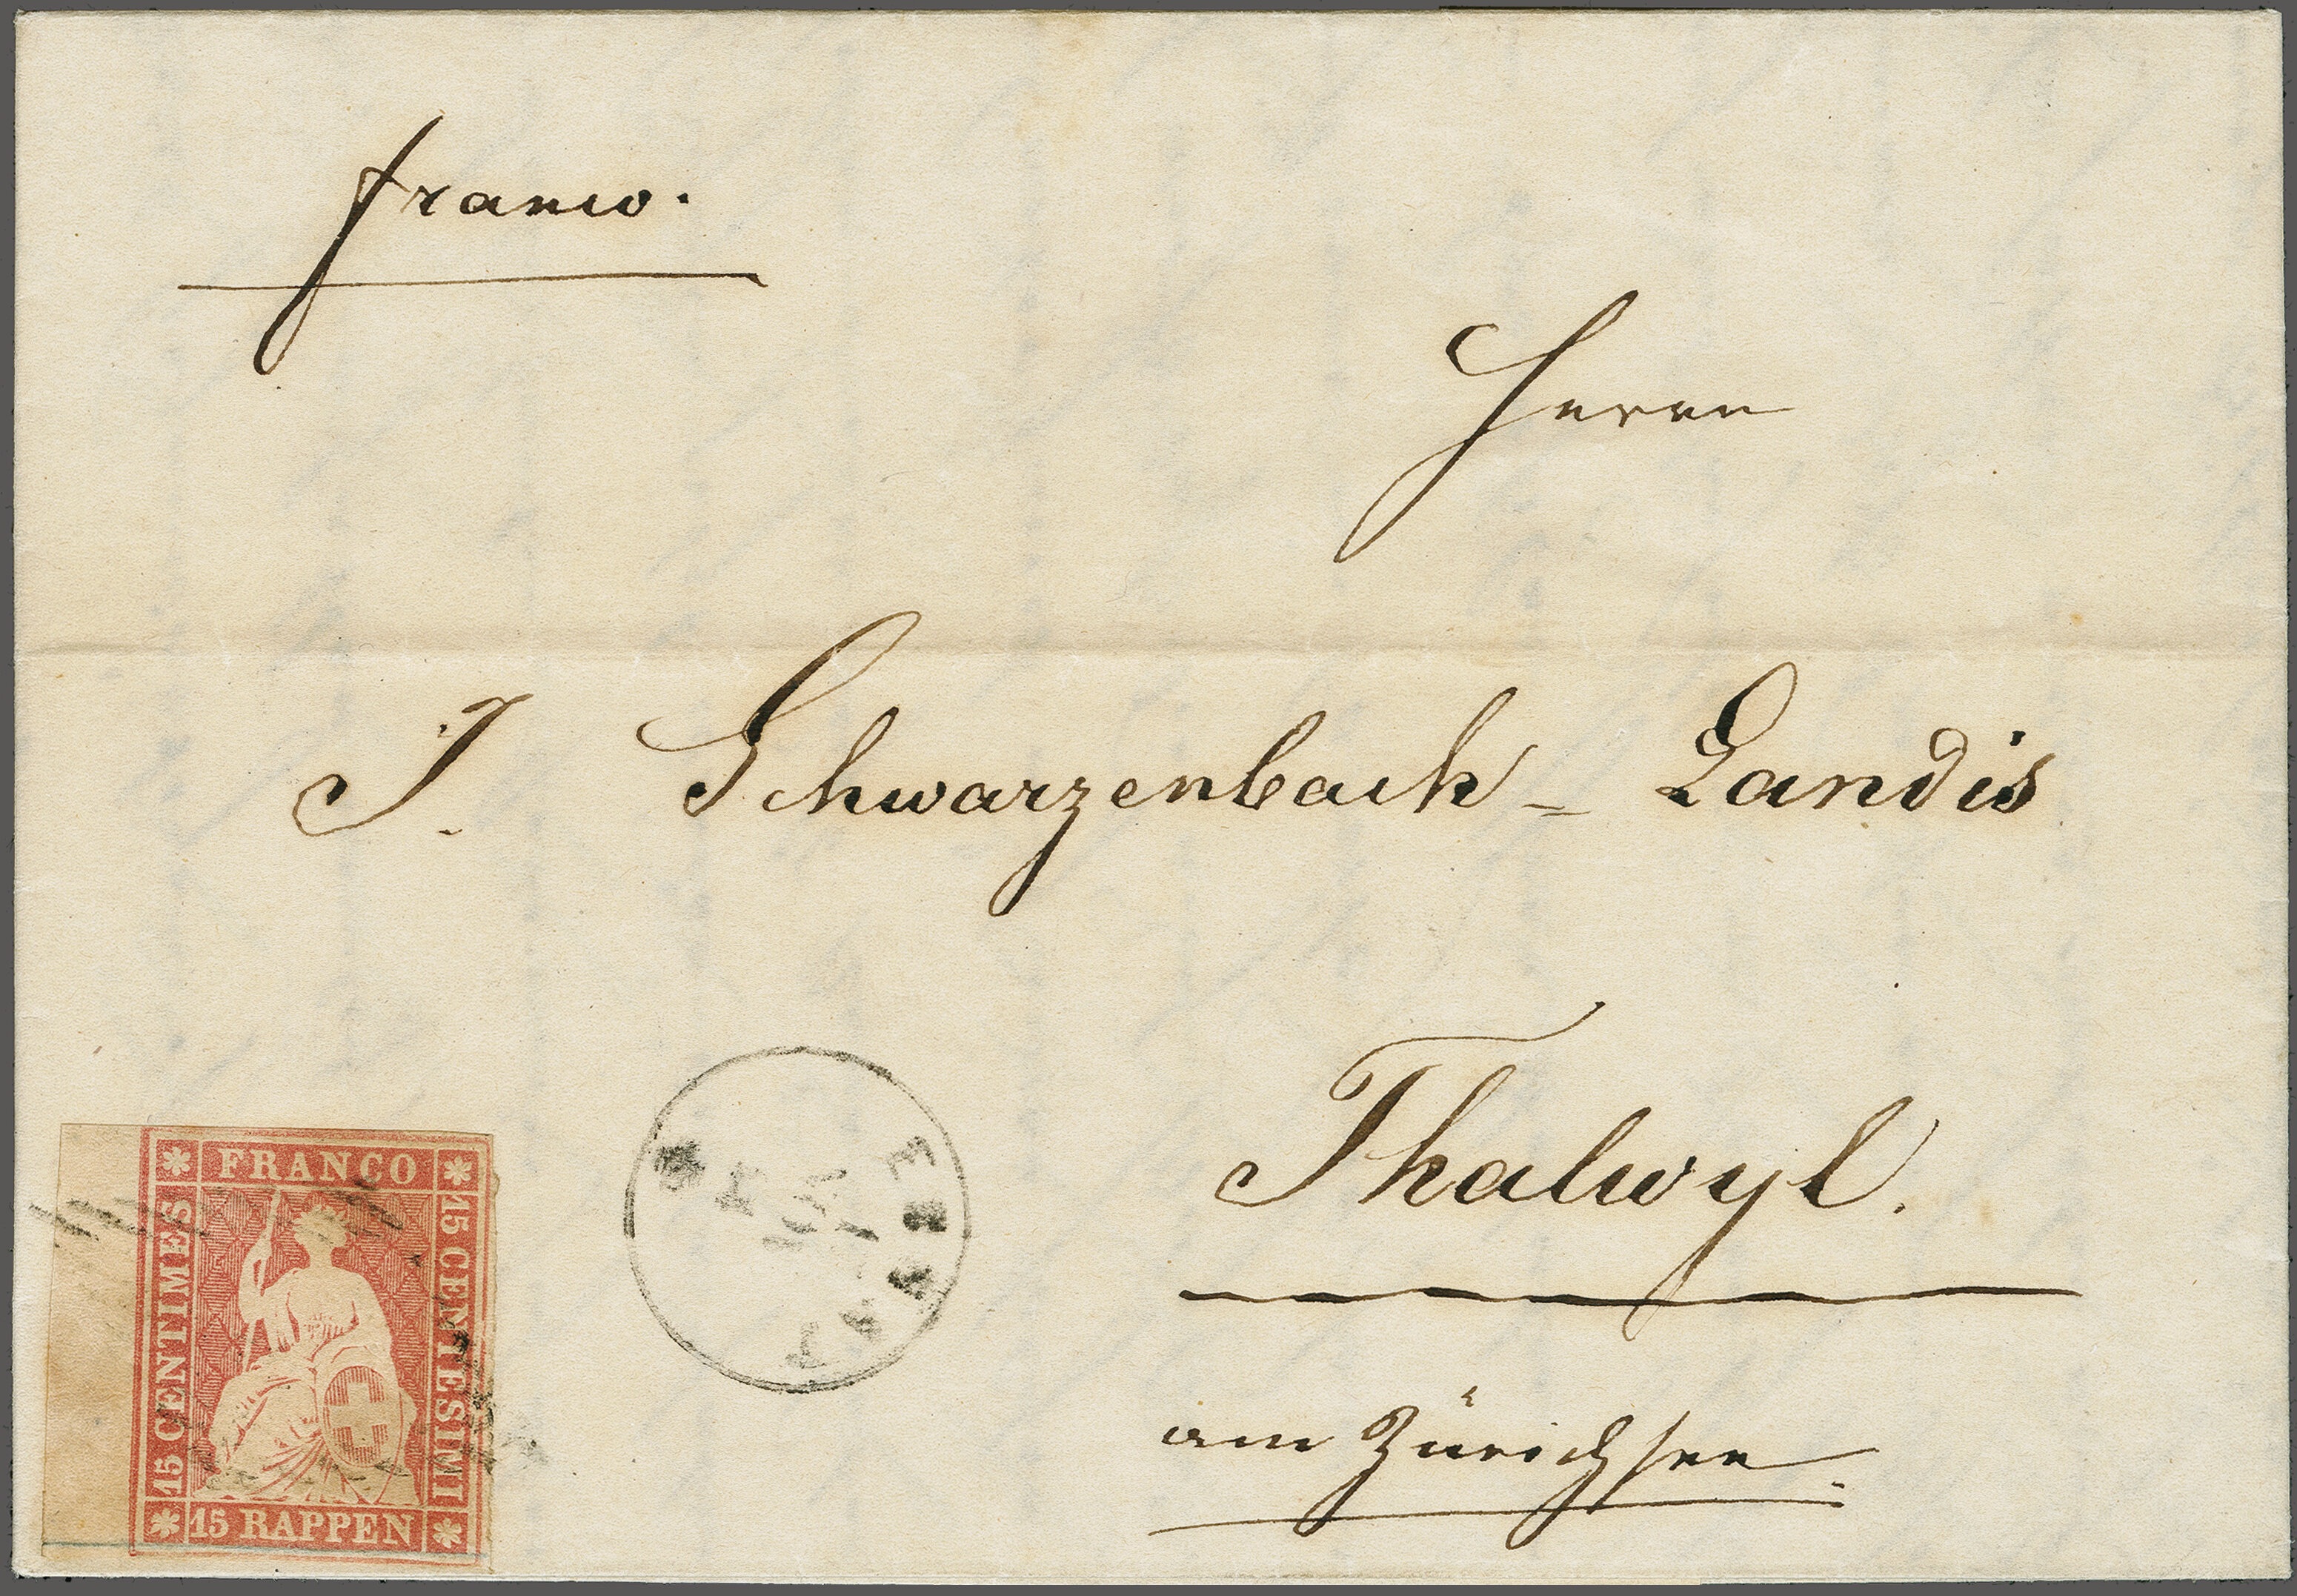 franco.
Herrn
J. Schwarzenbach = Landis
Thalwyl.
am Zürichsee.
FRANCO
15 CENTIMES
15 CENTESIMI
15 RAPPEN